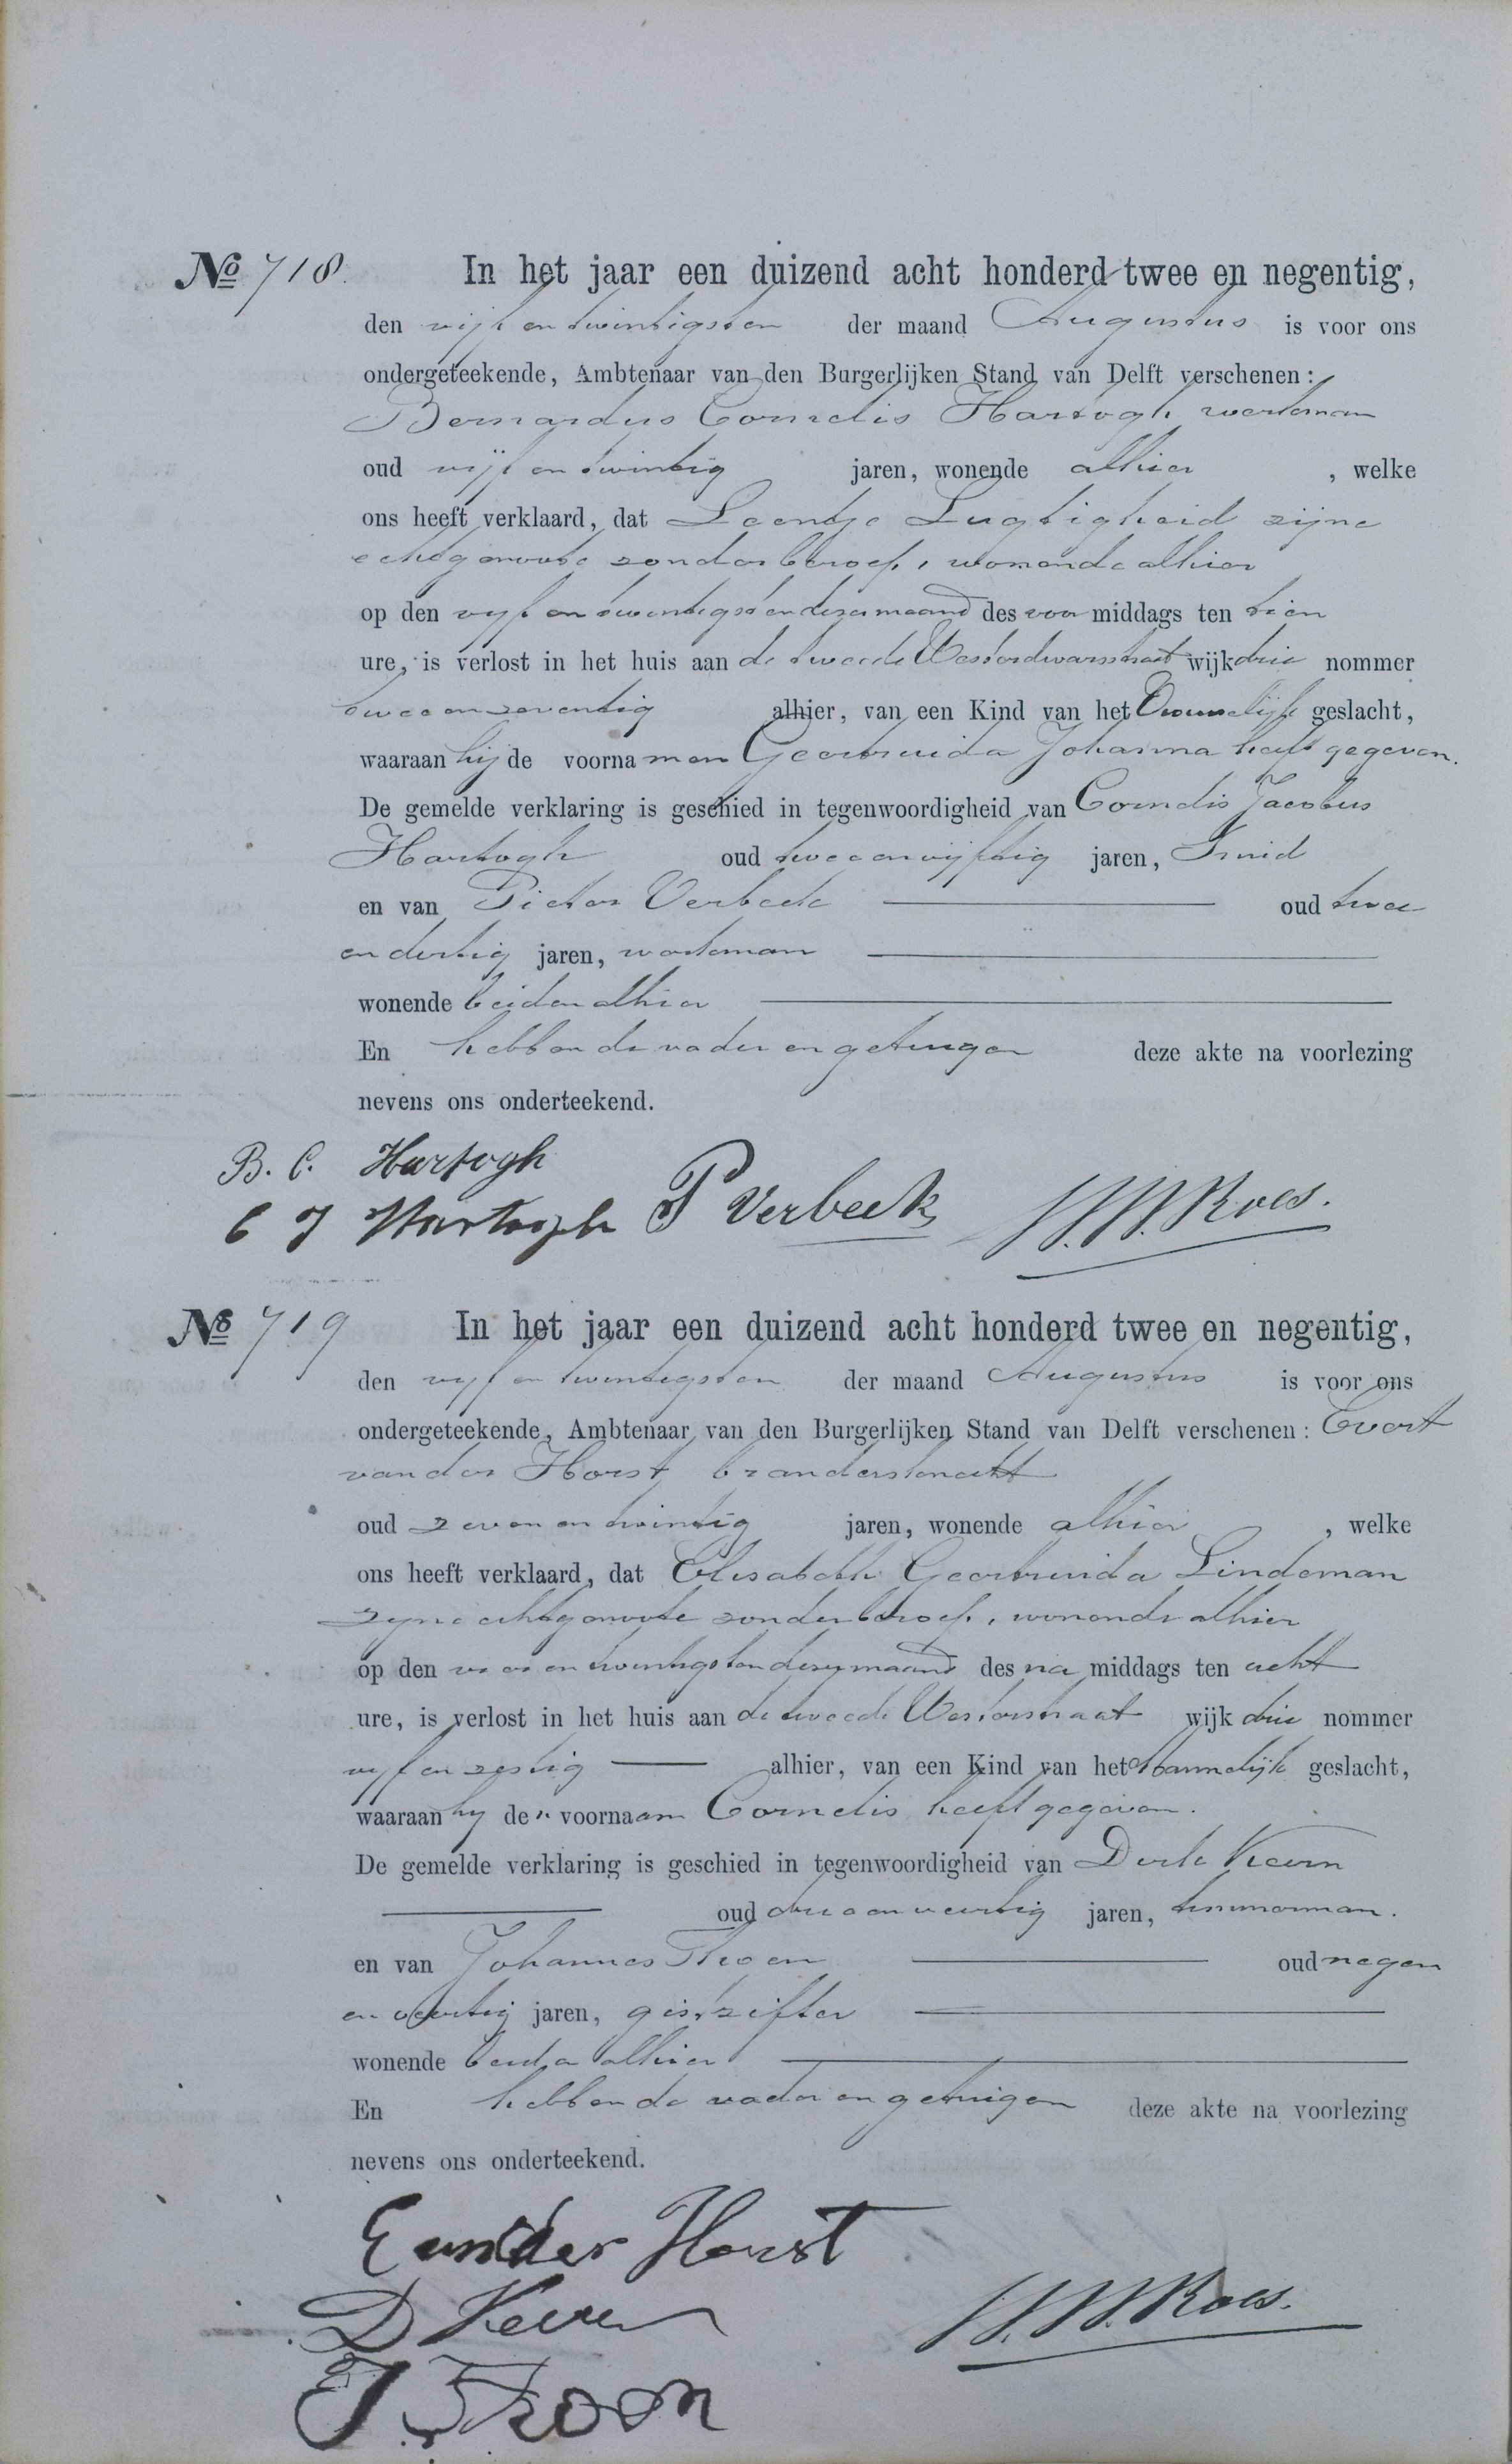 No 718. In het jaar een duizend acht honderd twee en negentig,
den vijf en twintigsten der maand Augustus is voor ons
ondergeteekende, Ambtenaar van den Burgerlijken Stand van Delft verschenen:
Bernardus Cornelis Hartogh, werkman
oud vijf en twintig jaren, wonende alhier , welke
ons heeft verklaard, dat Leentje Lugtigheid zijne
echtgenoote zonder beroep, wonende alhier
op den vijf en twintigsten dezer maand des voor middags ten tien
ure, is verlost in het huis aan de tweede Westerdwarsstraat wijk drie nommer
twee en zeventig alhier, van een Kind van het Vrouwelijk geslacht,
waaraan hij de voornamen Geertruida Johanna heeft gegeven.
De gemelde verklaring is geschied in tegenwoordigheid van Cornelis Jacobus
Hartogh oud twee en vijftig jaren, Smid
en van Pieter Verbeek oud twee
en dertig jaren, werkman
wonende beiden alhier
En hebben de vader en getuigen deze akte na voorlezing
nevens ons onderteekend.
B. C. Hartogh
C J Hartogh P Verbeek Roes.
No 719 In het jaar een duizend acht honderd twee en negentig,
den vijf en twintigsten der maand Augustus is voor ons
ondergeteekende, Ambtenaar van den Burgerlijken Stand van Delft verschenen: Evert
van der Horst, brandersknecht
oud zeven en twintig jaren, wonende alhier , welke
ons heeft verklaard, dat Elisabeth Geertruida Lindeman
zijne echtgenoote zonder beroep, wonende alhier
op den vier en twintigsten dezer maand des na middags ten acht
ure, is verlost in het huis aan de tweede Westerstraat wijk drie nommer
vijf en zestig alhier, van een Kind van het Mannelijk geslacht,
waaraan hij den voornaam Cornelis heeft gegeven.
De gemelde verklaring is geschied in tegenwoordigheid van Dirk
oud drie en veertig jaren, timmerman.
en van Johannes oud negen
en veertig jaren, gistzifter
wonende beiden alhier
En hebben de vader en getuigen deze akte na voorlezing
nevens ons onderteekend.
E van der Horst
D Roes.
J